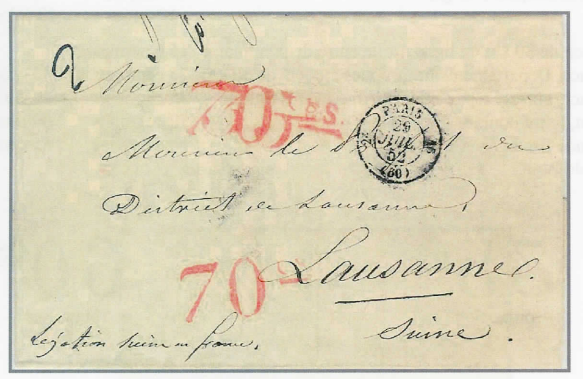 2
Monsieur
70 cs.
PARIS
29
JUIL.
52
(60)
Monsieur le du
District de Lausanne,
70 cs
Lausanne.
Suisse.
Légation suisse en france,